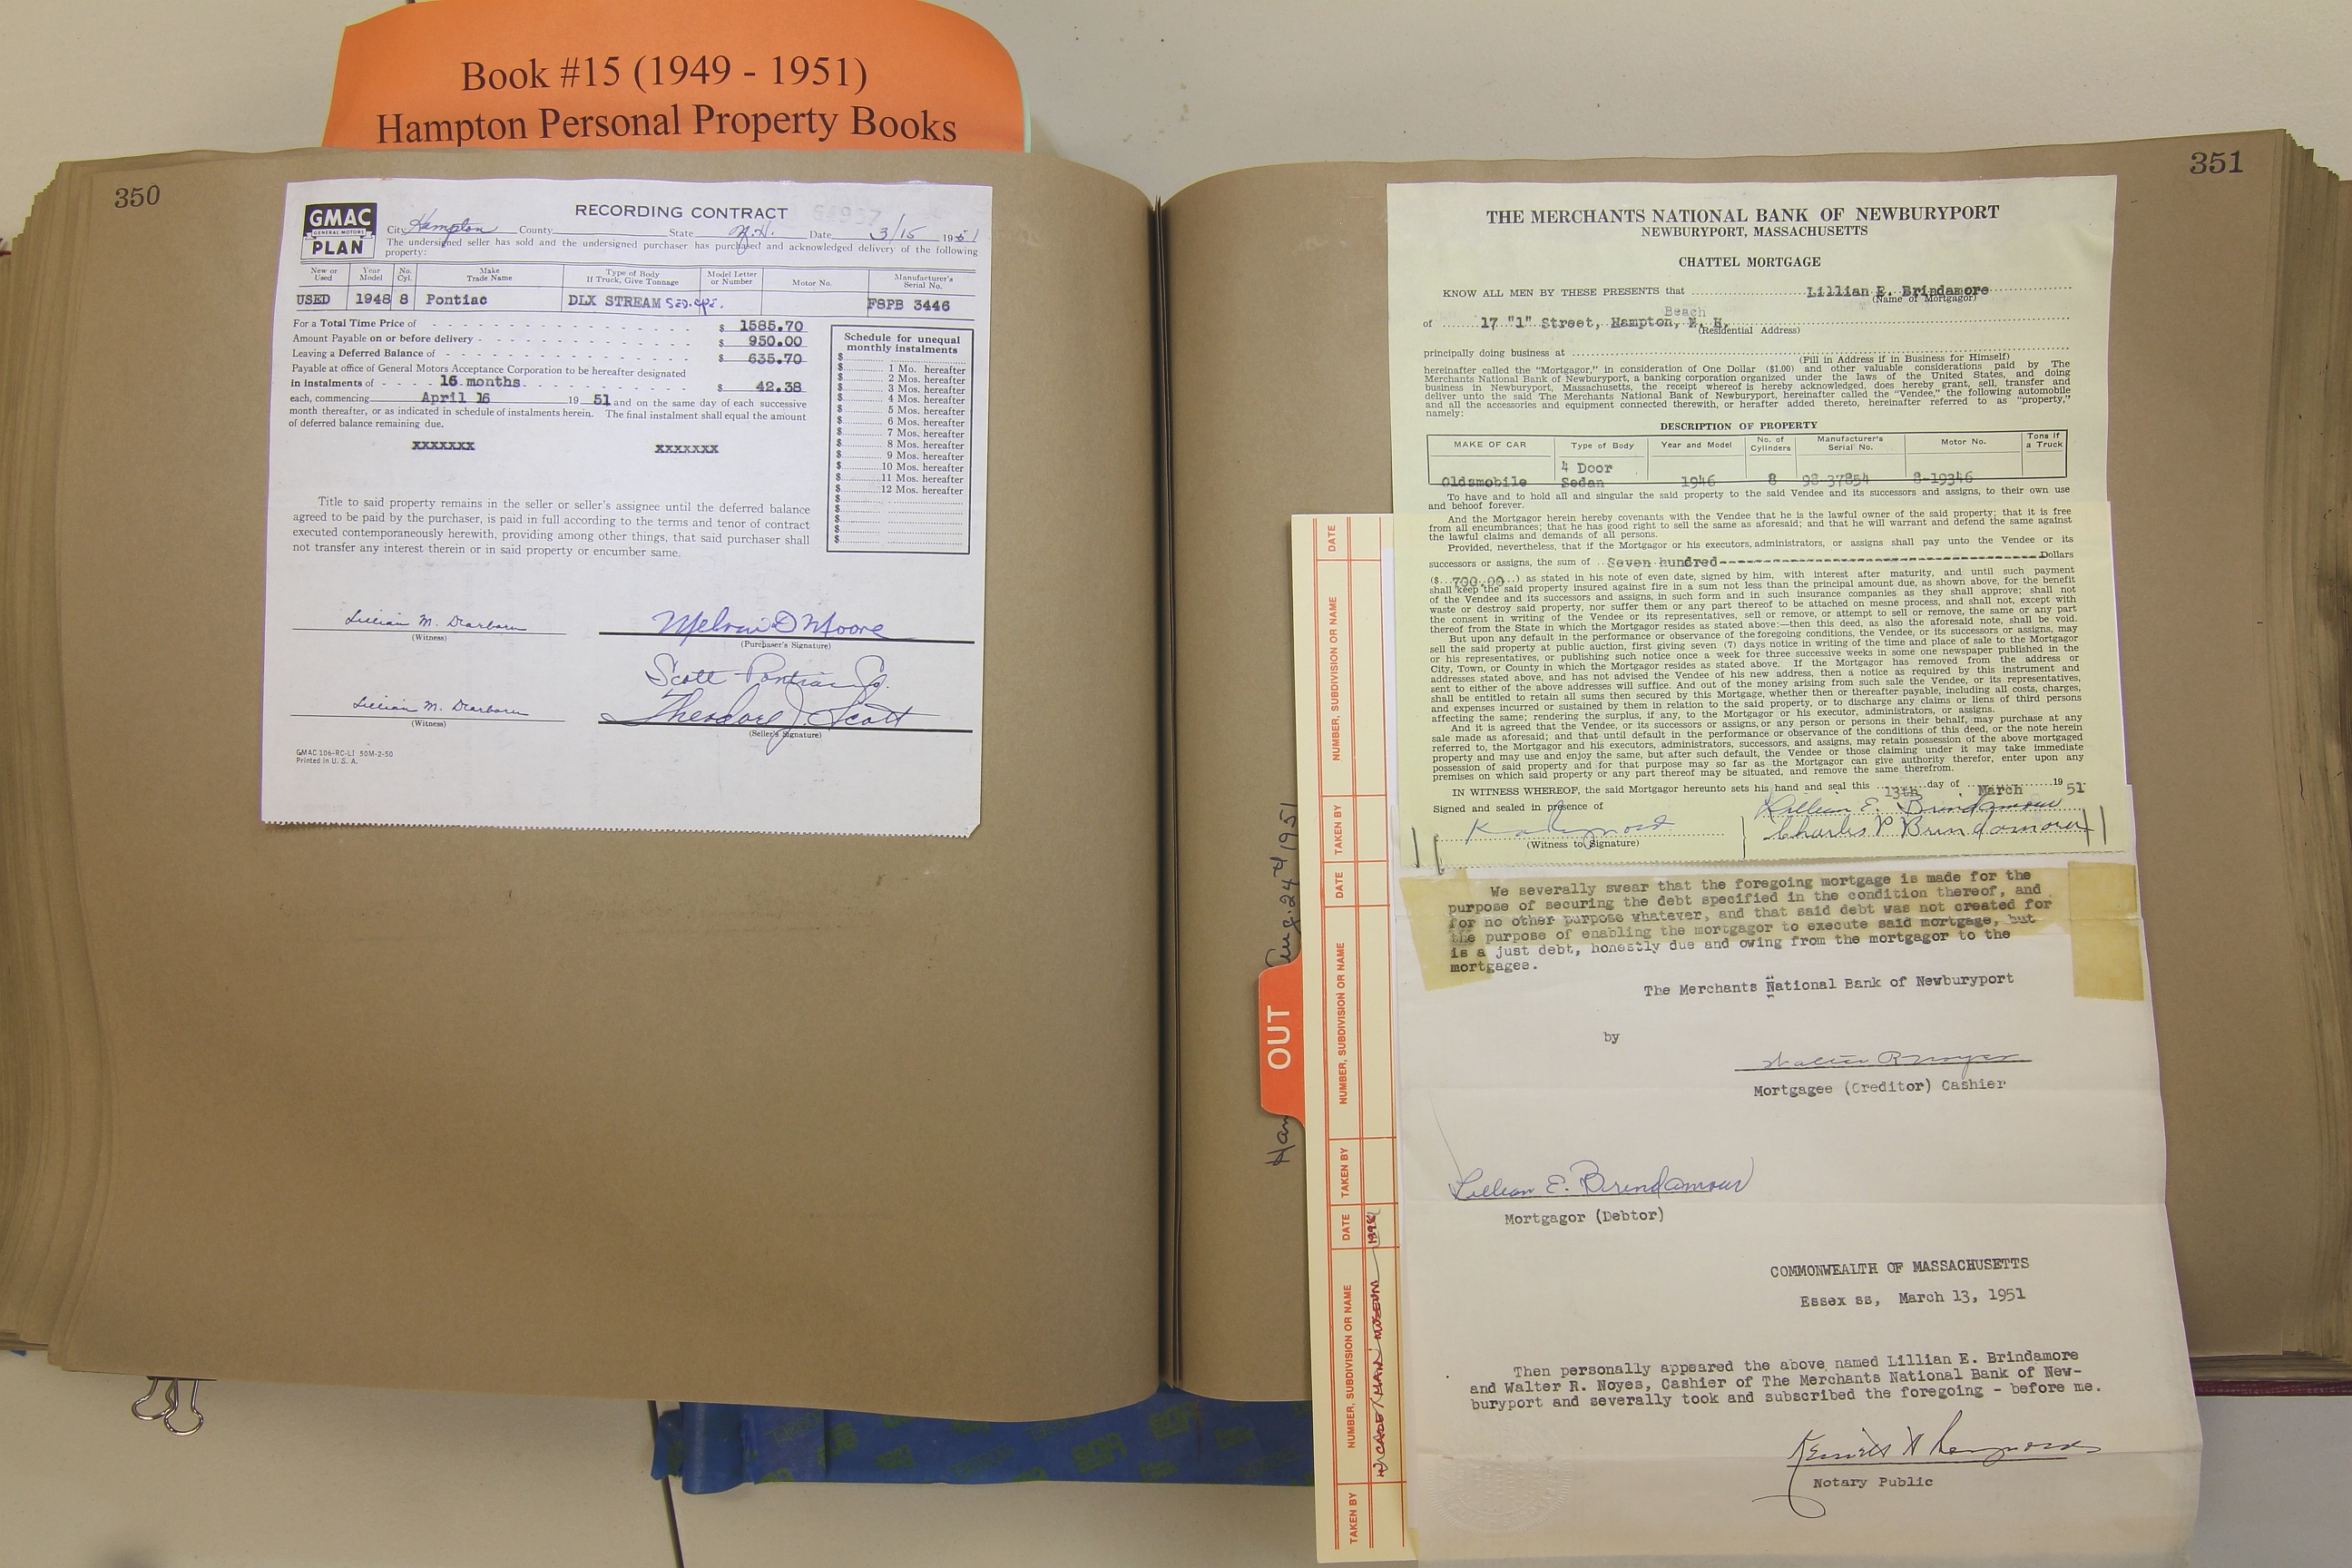 Book #15 (1949 - 1951)
Hampton Personal Property Books
350
GMAC
GENERAL MOTORS
PLAN
RECORDING CONTRACT
City Hampton County State N.H. Date 3/15 1951
The undersigned seller has sold and the undersigned purchaser has purchased and acknowledged delivery of the following
property:
New or Used Year Model No. Cyl. Make Trade Name Type of Body If Truck, Give Tonnage Model Letter or Number Motor No. Manufacturer's Serial No.
USED 1948 8 Pontiac DLX STREAM SED.CPE. F8PB 3446
For a Total Time Price of $ 1585.70
Amount Payable on or before delivery $ 950.00
Leaving a Deferred Balance of $ 635.70
Payable at office of General Motors Acceptance Corporation to be hereafter designated
in instalments of 16 months $ 42.38
each, commencing April 16 19 51 and on the same day of each successive
month thereafter, or as indicated in schedule of instalments herein. The final instalment shall equal the amount
of deferred balance remaining due.
XXXXXXX XXXXXXX
Schedule for unequal
monthly instalments
$ 1 Mo. hereafter
$ 2 Mos. hereafter
$ 3 Mos. hereafter
$ 4 Mos. hereafter
$ 5 Mos. hereafter
$ 6 Mos. hereafter
$ 7 Mos. hereafter
$ 8 Mos. hereafter
$ 9 Mos. hereafter
$ 10 Mos. hereafter
$ 11 Mos. hereafter
$ 12 Mos. hereafter
$
$
$
$
$
Title to said property remains in the seller or seller's assignee until the deferred balance
agreed to be paid by the purchaser, is paid in full according to the terms and tenor of contract
executed contemporaneously herewith, providing among other things, that said purchaser shall
not transfer any interest therein or in said property or encumber same.
Lillian M. Dearborn Melvin D Moore
(Witness) (Purchaser's Signature)
Scott Pontiac Co.
Lillian M. Dearborn Theodore J. Scott
(Witness) (Seller's Signature)
GMAC 106-RC-LI 50M-2-50
Printed in U. S. A.
351
THE MERCHANTS NATIONAL BANK OF NEWBURYPORT
NEWBURYPORT, MASSACHUSETTS
CHATTEL MORTGAGE
KNOW ALL MEN BY THESE PRESENTS that Lillian E. Brindamore
(Name of Mortgagor)
Beach
of 17 "l" Street, Hampton, N. H.
(Residential Address)
principally doing business at
(Fill in Address if in Business for Himself)
hereinafter called the "Mortgagor," in consideration of One Dollar ($1.00) and other valuable considerations paid by The
Merchants National Bank of Newburyport, a banking corporation organized under the laws of the United States, and doing
business in Newburyport, Massachusetts, the receipt whereof is hereby acknowledged, does hereby grant, sell, transfer and
deliver unto the said The Merchants National Bank of Newburyport, hereinafter called the "Vendee," the following automobile
and all the accessories and equipment connected therewith, or herafter added thereto, hereinafter referred to as "property,"
namely:
DESCRIPTION OF PROPERTY
MAKE OF CAR Type of Body Year and Model No. of Cylinders Manufacturer's Serial No. Motor No. Tons if a Truck
4 Door
Oldsmobile Sedan 1946 8 98-37854 8-19346
To have and to hold all and singular the said property to the said Vendee and its successors and assigns, to their own use
and behoof forever.
And the Mortgagor herein hereby covenants with the Vendee that he is the lawful owner of the said property; that it is free
from all encumbrances; that he has good right to sell the same as aforesaid; and that he will warrant and defend the same against
the lawful claims and demands of all persons.
Provided, nevertheless, that if the Mortgagor or his executors, administrators, or assigns shall pay unto the Vendee or its
successors or assigns, the sum of Seven hundred------------------------------Dollars
($ 700.00 ) as stated in his note of even date, signed by him, with interest after maturity, and until such payment
shall keep the said property insured against fire in a sum not less than the principal amount due, as shown above, for the benefit
of the Vendee and its successors and assigns, in such form and in such insurance companies as they shall approve; shall not
waste or destroy said property, nor suffer them or any part thereof to be attached on mesne process, and shall not, except with
the consent in writing of the Vendee or its representatives, sell or remove, or attempt to sell or remove, the same or any part
thereof from the State in which the Mortgagor resides as stated above:—then this deed, as also the aforesaid note, shall be void.
But upon any default in the performance or observance of the foregoing conditions, the Vendee, or its successors or assigns, may
sell the said property at public auction, first giving seven (7) days notice in writing of the time and place of sale to the Mortgagor
or his representatives, or publishing such notice once a week for three successive weeks in some one newspaper published in the
City, Town, or County in which the Mortgagor resides as stated above. If the Mortgagor has removed from the address or
addresses stated above, and has not advised the Vendee of his new address, then a notice as required by this instrument and
sent to either of the above addresses will suffice. And out of the money arising from such sale the Vendee, or its representatives,
shall be entitled to retain all sums then secured by this Mortgage, whether then or thereafter payable, including all costs, charges,
and expenses incurred or sustained by them in relation to the said property, or to discharge any claims or liens of third persons
affecting the same; rendering the surplus, if any, to the Mortgagor or his executor, administrators, or assigns.
And it is agreed that the Vendee, or its successors or assigns, or any person or persons in their behalf, may purchase at any
sale made as aforesaid; and that until default in the performance or observance of the conditions of this deed, or the note herein
referred to, the Mortgagor and his executors, administrators, successors, and assigns, may retain possession of the above mortgaged
property and may use and enjoy the same, but after such default, the Vendee or those claiming under it may take immediate
possession of said property and for that purpose may so far as the Mortgagor can give authority therefor, enter upon any
premises on which said property or any part thereof may be situated, and remove the same therefrom.
IN WITNESS WHEREOF, the said Mortgagor hereunto sets his hand and seal this 13th day of March 19 51
Signed and sealed in presence of Lillian E. Brindamour
Charles P Brindamour
(Witness to Signature)
We severally swear that the foregoing mortgage is made for the
purpose of securing the debt specified in the condition thereof, and
for no other purpose whatever, and that said debt was not created for
the purpose of enabling the mortgagor to execute said mortgage, but
is a just debt, honestly due and owing from the mortgagor to the
mortgagee.
The Merchants National Bank of Newburyport
by
Walter R Noyes
Mortgagee (Creditor) Cashier
Lillian E. Brindamour
Mortgagor (Debtor)
COMMONWEALTH OF MASSACHUSETTS
Essex ss, March 13, 1951
Then personally appeared the above named Lillian E. Brindamore
and Walter R. Noyes, Cashier of The Merchants National Bank of New-
buryport and severally took and subscribed the foregoing - before me.
Notary Public
OUT
TAKEN BY NUMBER, SUBDIVISION OR NAME DATE TAKEN BY NUMBER, SUBDIVISION OR NAME DATE TAKEN BY NUMBER, SUBDIVISION OR NAME DATE
Ham Aug. 24th 1951